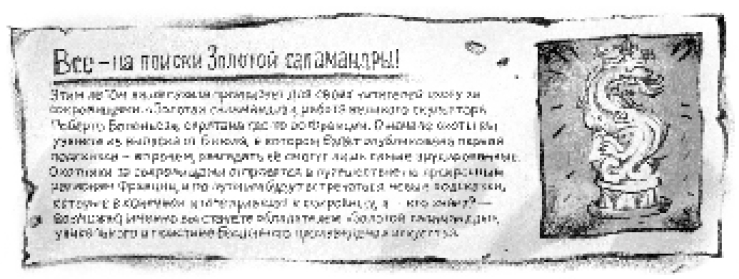 Все – на поиски Золотой саламандры!
Этим летом наш журнал проводит для своих читателей охоту за
сокровищами. «Золотая саламандра», работа великого скульптора
Роберто Болоньезе, спрятана где-то во Франции. О начале охоты вы
узнаете из выпуска от 6 июля, в котором будет опубликована первая
подсказка – впрочем, разгадать её смогут лишь самые эрудированные.
Охотники за сокровищами отправятся в путешествие по прекрасным
регионам Франции, и по пути им будут встречаться новые подсказки,
которые в конечном и приведут к сокровищу, а – кто знает? –
возможно, именно вы станете обладателем «Золотой саламандры»,
уникального и поистине бесценного произведения искусства.